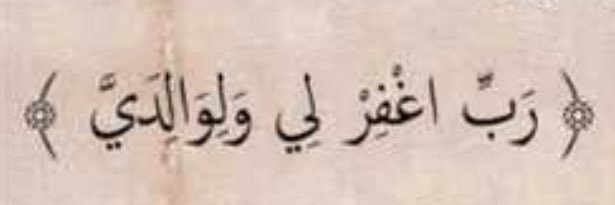 ﴿ رَبِّ اغْفِرْ لِي وَلِوَالِدَيَّ ﴾